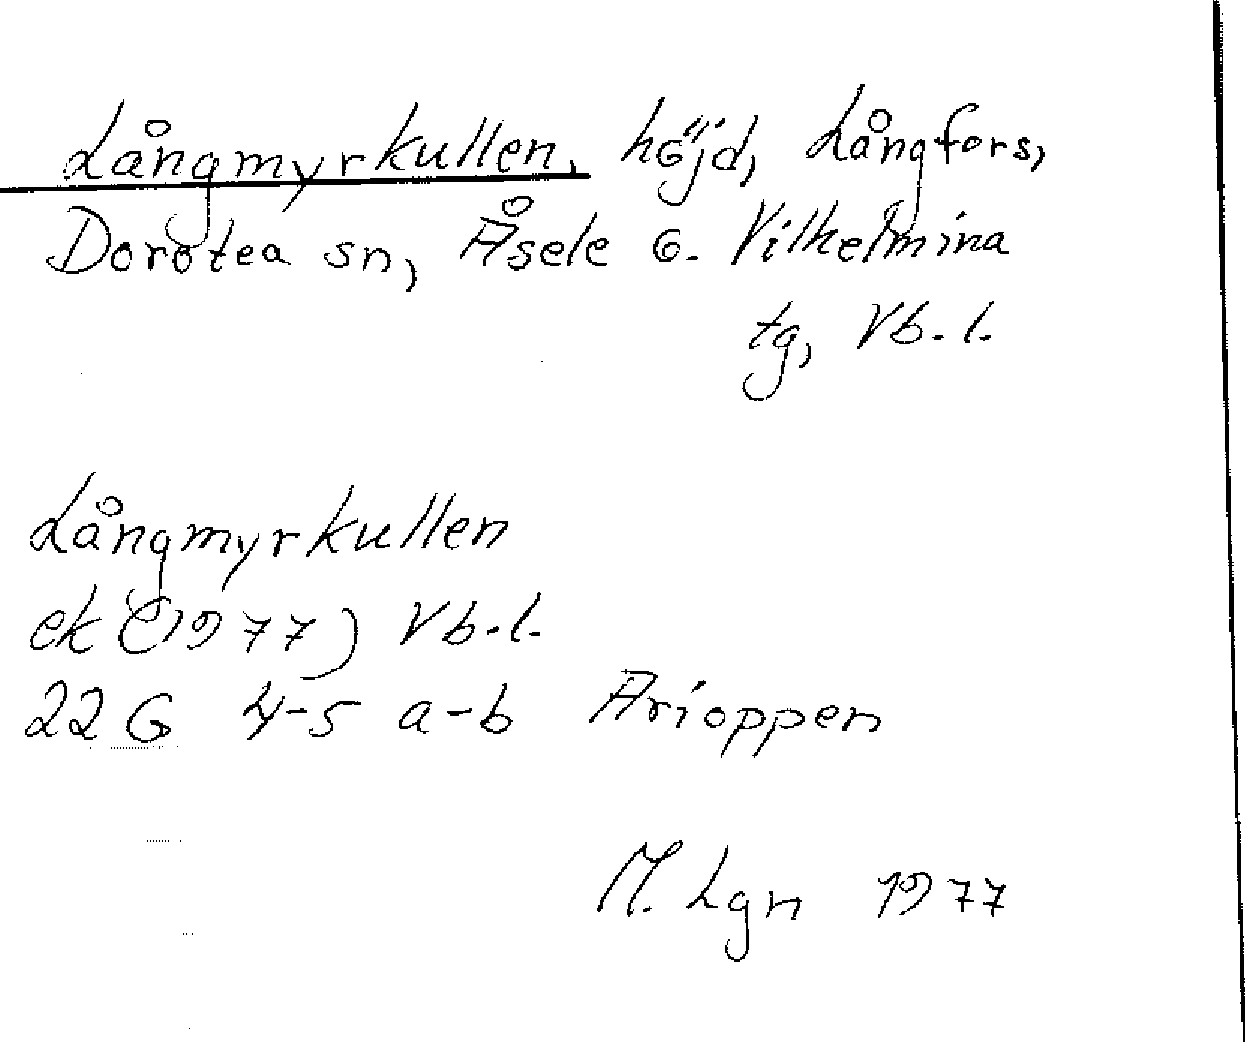 Långmyrkullen, höjd, Långfors,
Dorotea sn, Åsele o. Vilhelmina
tg, Vb. l.
Långmyrkullen
ek (1977) Vb. l.
22 G 4-5 a-b Arioppen
M. Lgn 1977